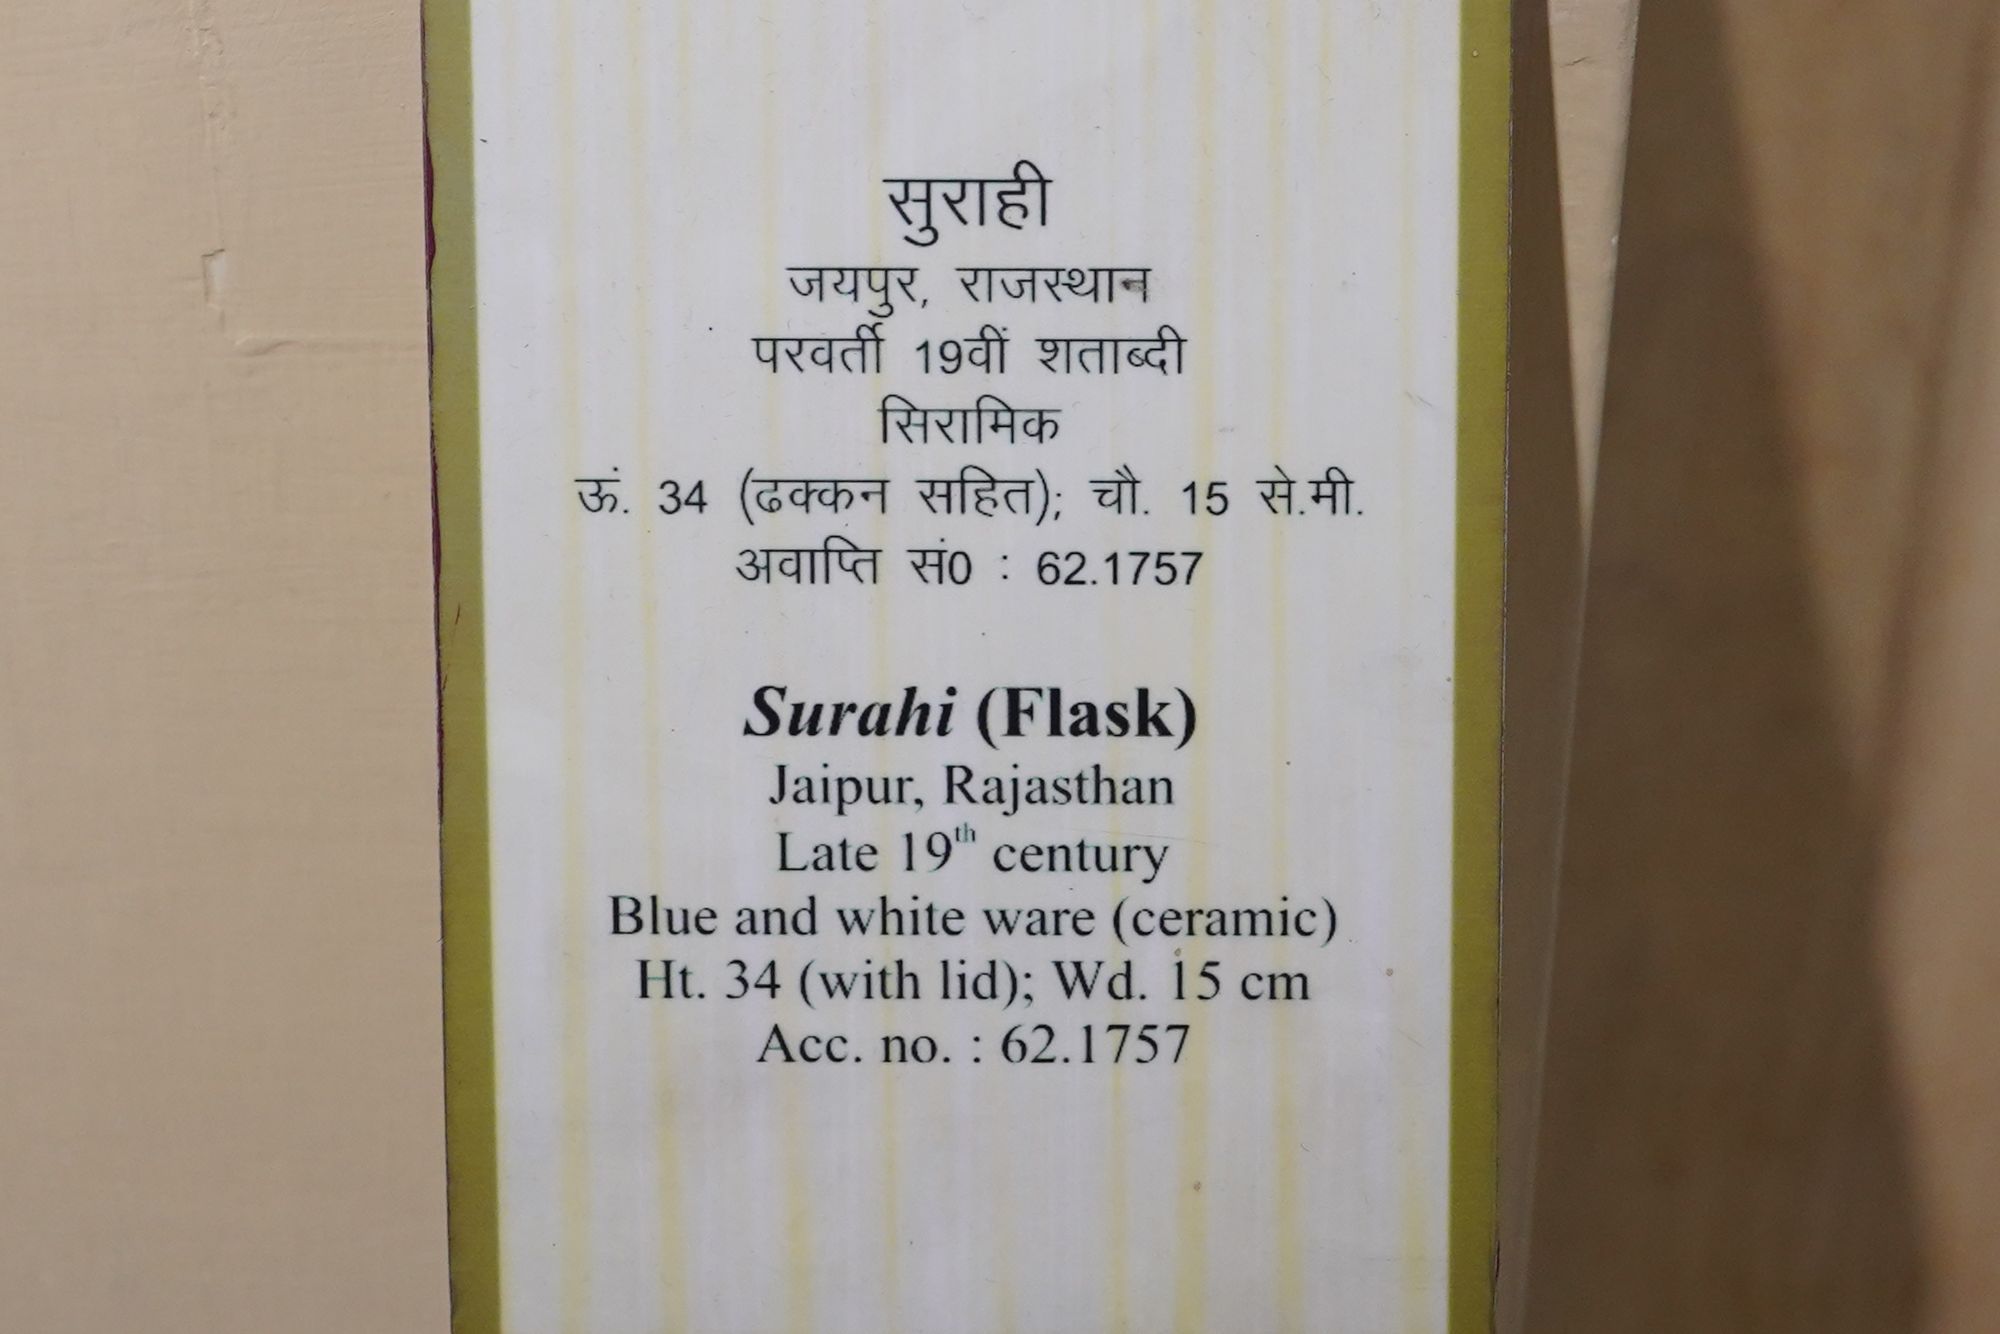 सुराही
जयपुर, राजस्थान
परवर्ती 19वीं शताब्दी
सिरामिक
ऊं. 34 (ढक्कन सहित); चौ. 15 से.मी.
अवाप्ति सं0 : 62.1757
Surahi (Flask)
Jaipur, Rajasthan
Late 19th century
Blue and white ware (ceramic)
Ht. 34 (with lid); Wd. 15 cm
Acc. no. : 62.1757